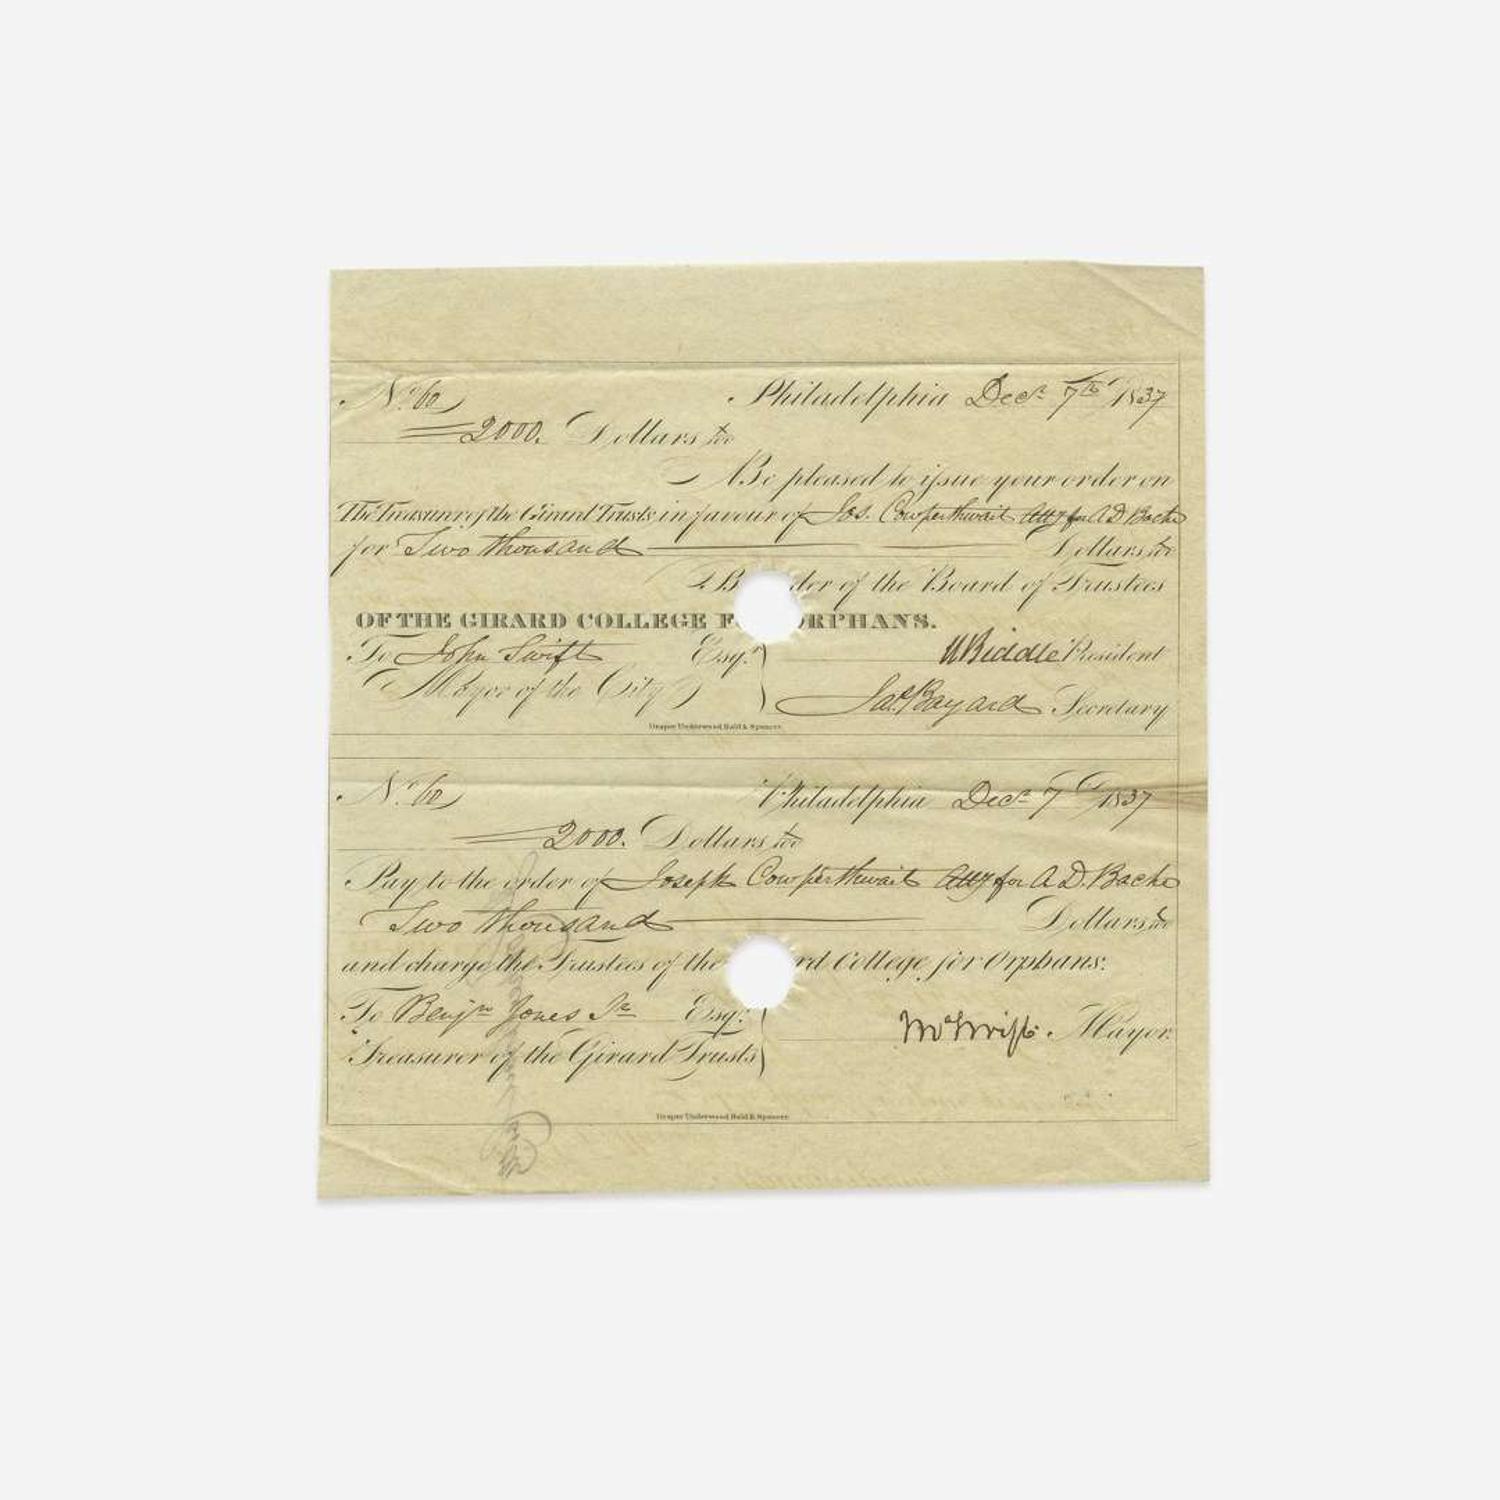 No. 60
Philadelphia Decr. 7th 1837
2000. Dollars 100
Be pleased to issue your order on
The Treasurer of the Girard Trusts in favour of Jos. Cowperthwait Atty for A D Bache
for Two thousand Dollars 100
By der of the Board of Trustees
OF THE GIRARD COLLEGE F ORPHANS.
To John Swift Esqr.
N Biddle President
Mayor of the City
Jas Bayard Secretary
Draper Underwood Bald & Spencer
No. 60
Philadelphia Decr. 7th 1837
2000. Dollars 100
Pay to the order of Joseph Cowperthwait Atty for A. D. Bache
Two thousand Dollars 100
and charge the Trustees of the rd College for Orphans:
To Benjn Jones Jr Esqr.
Swift Mayor.
Treasurer of the Girard Trusts
Draper Underwood Bald & Spencer